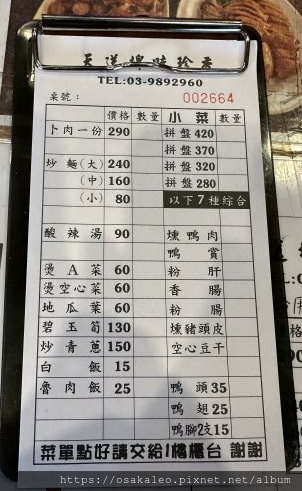 TEL:03-9892960
桌號：
002664
價格 數量 小菜 數量
卜肉一份 290 拼盤420
拼盤370
炒麵(大) 240 拼盤320
(中) 160 拼盤280
(小) 80 以下7種綜合
酸辣湯 90 燻鴨肉
鴨賞
燙A菜 60 粉肝
燙空心菜 60 香腸
地瓜葉 60 粉腸
碧玉筍 130 燻豬頭皮
炒青蔥 150 空心豆干
白飯 15
魯肉飯 25 鴨頭35
鴨翅25
鴨腳2支15
菜單點好請交給1樓櫃台 謝謝
https://osakaleo.pixnet.net/album